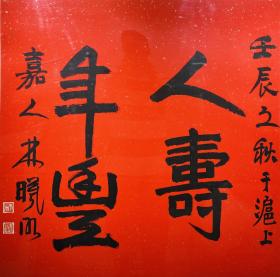 壬辰之秋于滬上
人壽
年豐
嘉人林曦明